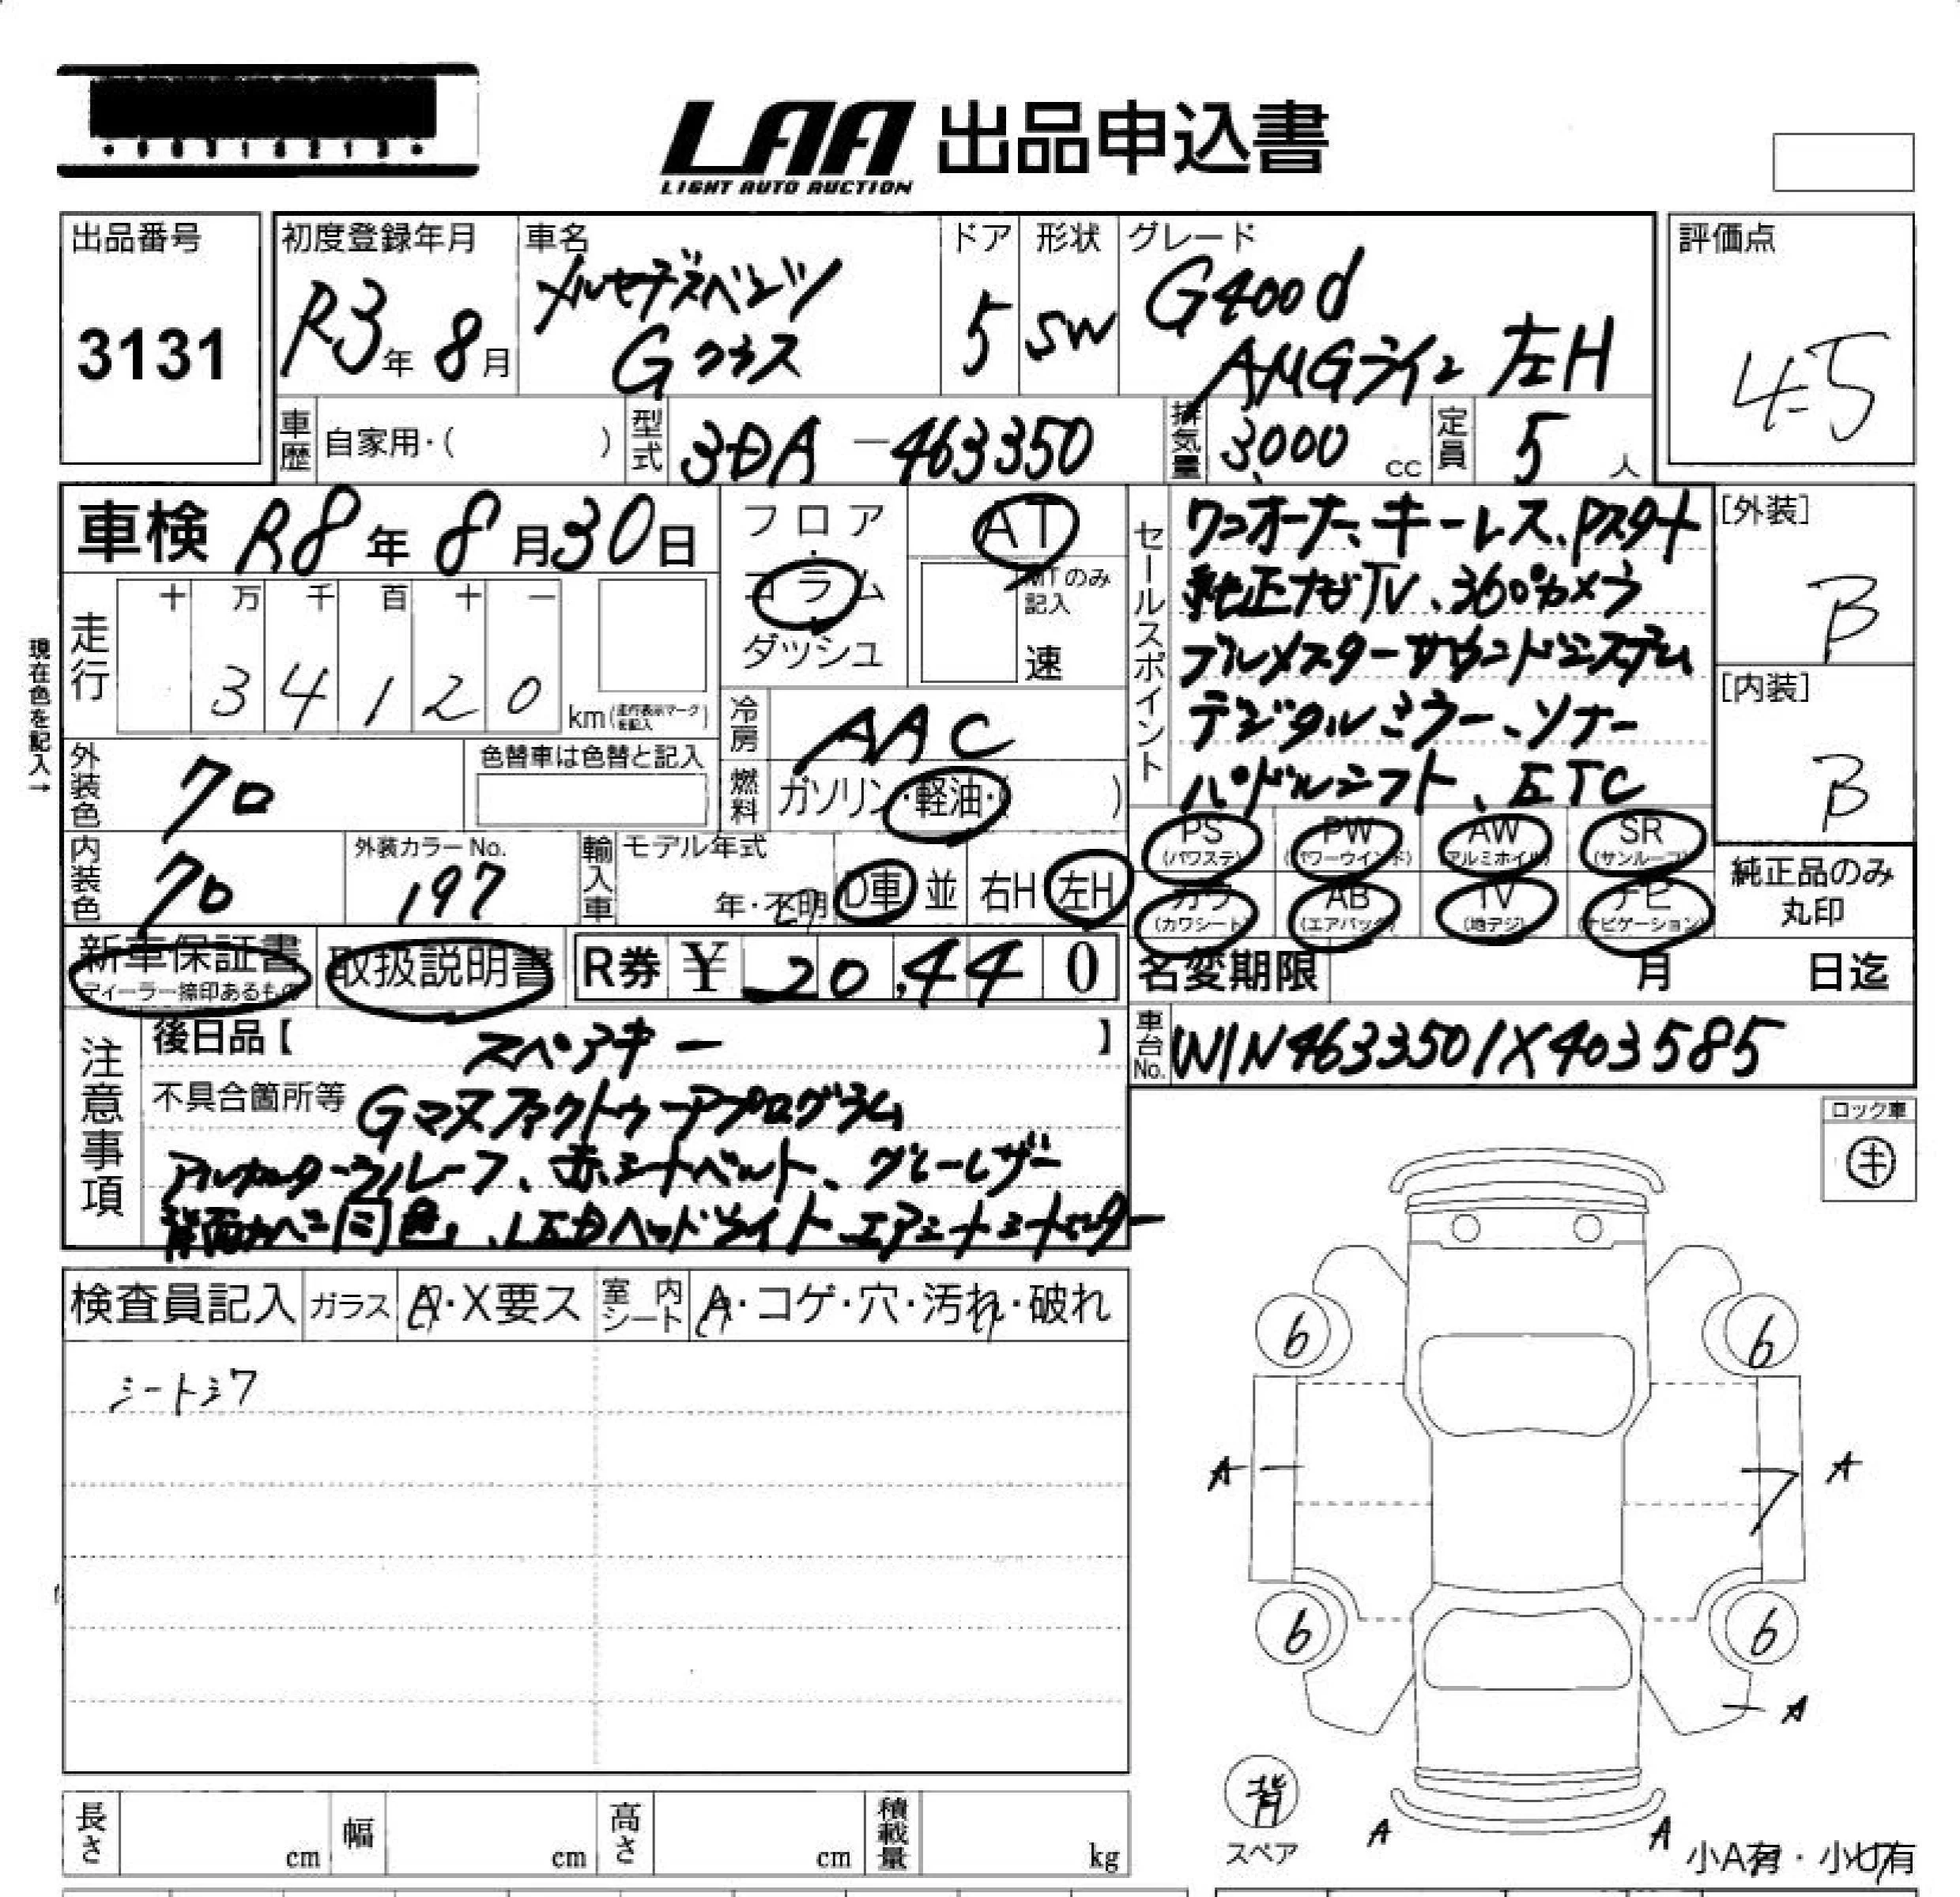 LAA 出品申込書
LIGHT AUTO AUCTION
出品番号
3131
初度登録年月
R3年 8月
車名
メルセデスベンツ
Gクラス
ドア
5
形状
SW
グレード
G400d
AMGライン 左H
評価点
4.5
車歴 自家用・( )
型式 3DA-463350
排気量 3,000 cc
定員 5 人
車検 R8年 8月30日
フロア・コラム・ダッシュ
AT
MTのみ記入
速
セールスポイント
ワンオーナー、キーレス、Pスタート
純正ナビTV、360°カメラ
ブルメスターサウンドシステム
デジタルミラー、ソナー
パドルシフト、ETC
[外装]
B
[内装]
B
現在色を記入→
走行
十 万 千 百 十 一
3 4 1 2 0
km(走行表示マークを記入)
冷房 AAC
燃料 ガソリン・軽油・( )
外装色 クロ
色替車は色替と記入
内装色 クロ
外装カラーNo.
197
輸入車
モデル年式
年・不明
D車 並 右H 左H
PS (パワステ)
PW (パワーウインド)
AW (アルミホイル)
SR (サンルーフ)
カワ (カワシート)
AB (エアバック)
TV (地デジ)
ナビ (ナビゲーション)
純正品のみ
丸印
新車保証書
ディーラー捺印あるもの
取扱説明書
R券 ¥ 20,440
名変期限 月 日迄
注意事項
後日品【 スペアキー 】
不具合箇所等 Gマヌファクトゥーアプログラム
アルカンターラルーフ、赤シートベルト、グレーレザー
背面カバー同色、LEDヘッドライト、エアシート、シートヒーター
車台No. W1N4633501X403585
ロック車
キ
検査員記入
ガラス A・X要ス
室内シート A・コゲ・穴・汚れ・破れ
シートシワ
6
6
A
A
6
6
A
背
スペア
A
A
小A有・小U有
長さ cm
幅 cm
高さ cm
積載量 kg